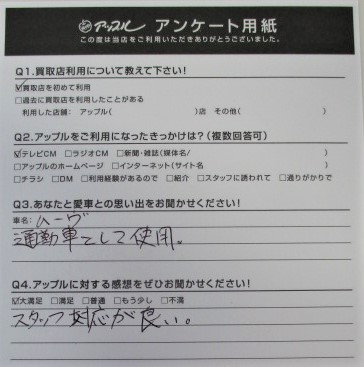 アップル アンケート用紙
この度は当店をご利用いただきありがとうございました。
Q1.買取店利用について教えて下さい!
☑買取店を初めて利用
□過去に買取店を利用したことがある
利用した店舗: アップル( )店 その他( )
Q2.アップルをご利用になったきっかけは?(複数回答可)
☑テレビCM □ラジオCM □新聞・雑誌(媒体名/ )
□アップルのホームページ □インターネット(サイト名 )
□チラシ □DM □利用経験があるので □紹介 □スタッフに誘われて □通りがかりで
Q3.あなたと愛車との思い出をお聞かせください!
車名: ムーヴ
通勤車として使用。
Q4.アップルに対する感想をぜひお聞かせください!
☑大満足 □満足 □普通 □もう少し □不満
スタッフ対応が良い。